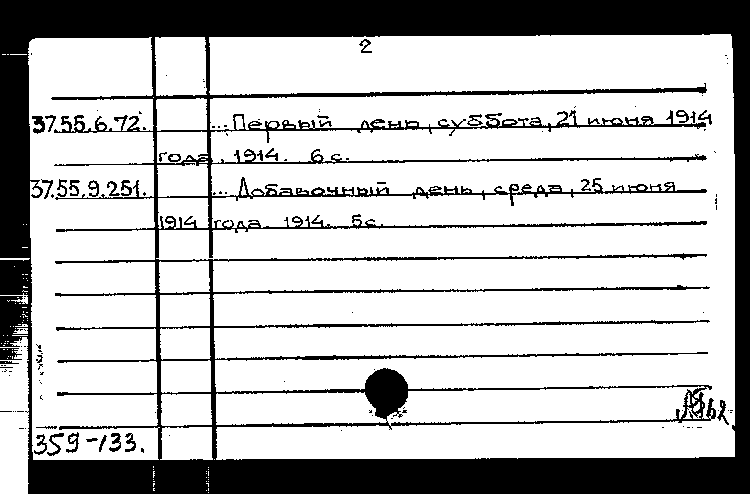 2
37.55.6.72. ... Первый день, суббота, 21 июня 1914
года. 1914. 6 с.
37.55.9.251. ... Добавочный день, среда, 25 июня
1914 года. 1914. 5с.
359-133.